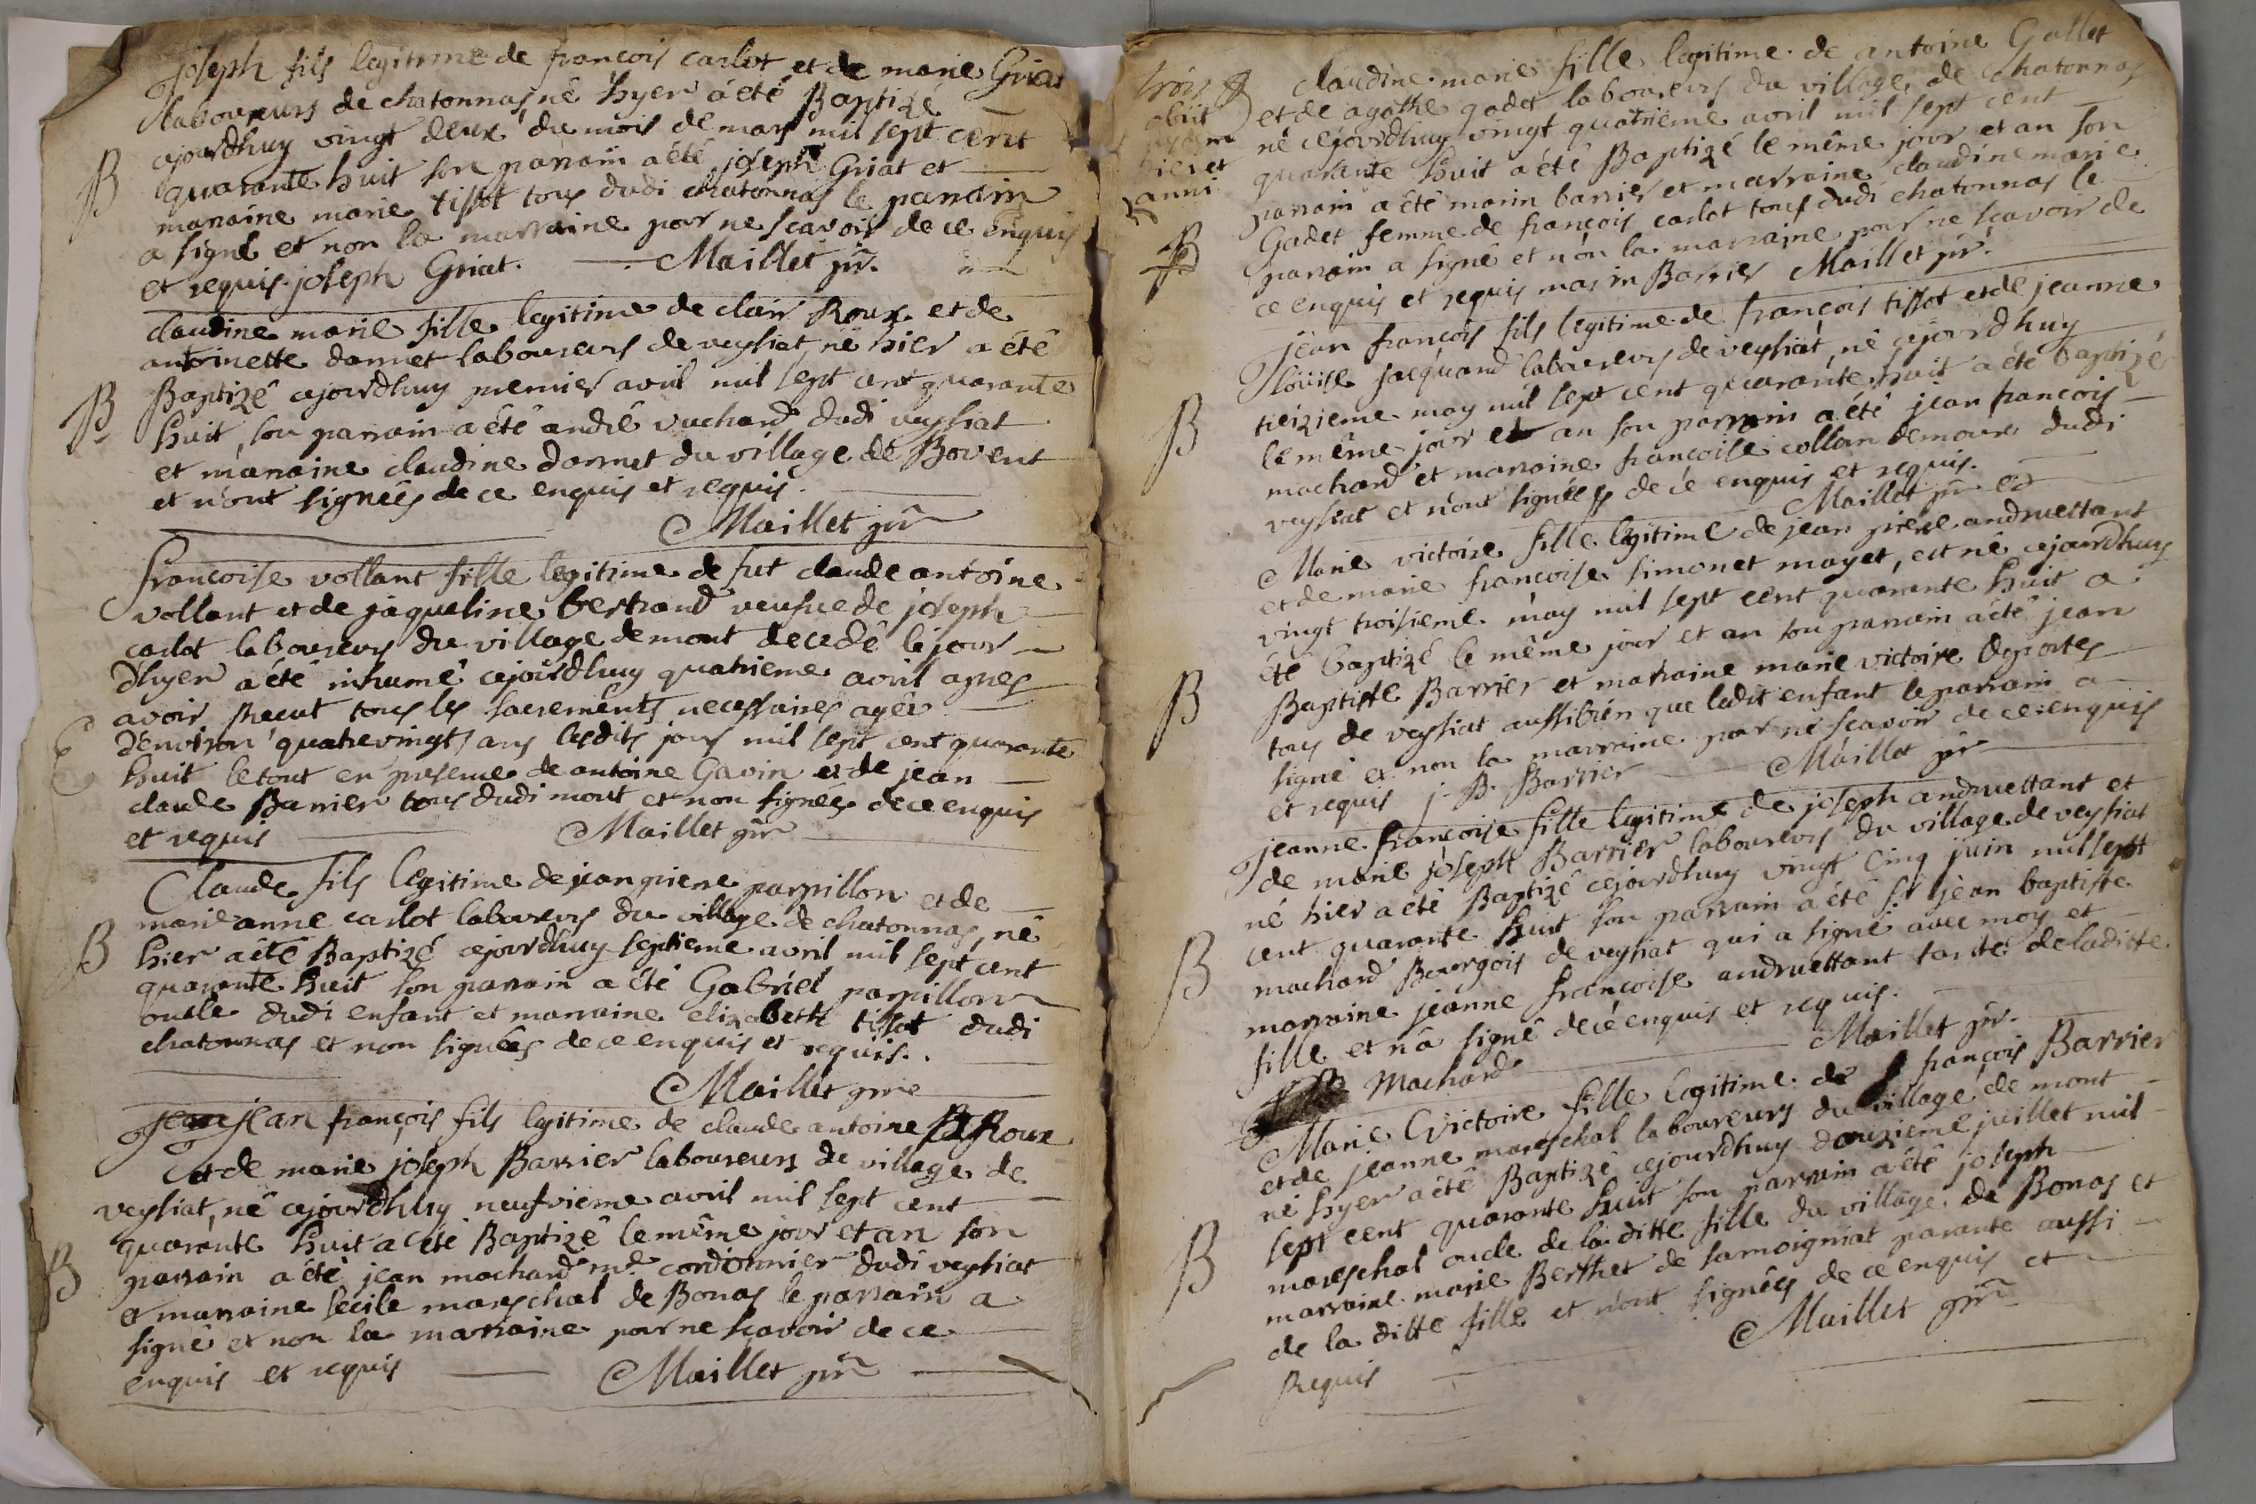 Joseph fils legitime de françois carlot et de marie Griat
laboureurs de chatonnas né hyer a été Baptizé
cejourdhuy vingt deux du mois de mars mil sept cent
B quarante huit son parrain a été joseph Griat et
marraine marie tissot tous dudi chatonnas le parrain
a signé et non la marraine pour ne scavoir de ce enquis
et requis. joseph Griat. Maillet ptr.
claudine marie fille legitime de clair Roux et de
antoinette donnet laboureurs de veysiat, né hier a été
B Baptizé cejourdhuy premier avril mil sept cent quarante
huit, son parrain a été andré vuchard dudi veysiat
et marraine claudine donnet du village de Bovent
et n'ont signées de ce enquis et requis.
Maillet ptr
françoise vollant fille legitime de fut claude antoine
vollant et de jaqueline bertrand veufue de joseph
carlot laboureurs du village de mont decedé le jour
d'hyer a été inhumé cejourdhuy quatrieme avril apres
avoir Recut tous les sacrements necessaires agée
E d'environ quatrevingts ans lesdits jours mil sept cent quarante
huit le tout en presence de antoine Gavin et de jean
claude Barrier tous dudi mont et non signées de ce enquis
et requis Maillet ptr
Claude fils legitime de jean pierre parpillon et de
marie anne carlot laboureurs du village de chatonnas, né
B hier a été Baptizé cejourdhuy septieme avril mil sept cent
quarante huit son parrain a été Gabriel parpillon
oncle dudi enfant et marraine elizabeth tissot dudi
chatonnas et non signées de ce enquis et requis.
Maillet ptre
jean françois fils legitime de claude antoine Roux
et de marie joseph Barrier laboureurs du village de
veysiat, né cejourdhuy neufvieme avril mil sept cent
quarante huit a été Baptizé le même jour et an son
B parrain a été jean machard md cordonnier dudi veysiat
et marraine cecile mareschal de Bonas le parrain a
signé et non la marraine pour ne scavoir de ce
enquis et requis Maillet ptr
obiit
anni
claudine marie fille legitime de antoine Gallet
et de agathe gadet laboureurs du village de chatonnas
né cejourdhuy vingt quatrieme avril mil sept cent
quarante huit a été Baptizé le même jour et an son
parrain a été marin barrier et marraine claudine marie
B Gadet femme de françois carlot tous dudi chatonnas le
parrain a signé et non la marraine pour ne scavoir de
ce enquis et requis marin Barrier Maillet ptr.
jean françois fils legitime de françois tissot et de jeanne
Louise jacquand laboureurs de veysiat, né cejourdhuy
treizieme may mil sept cent quarante huit a été baptizé
B le même jour et an son parrain a été jean françois
machard et marraine françoise collan demeure dudi
veysiat et n'ont signées de ce enquis et requis.
Maillet ptr
Marie victoire fille legitime de jean pierre andruettant
et de marie françoise simonet mayet, est né cejourdhuy
vingt troisieme may mil sept cent quarante huit a
été baptizé le même jour et an son parrain a été jean
B Baptiste Barrier et marraine marie victoire deportes
tous de veysiat aussibien que ledit enfant le parrain a
signé et non la marraine pour ne scavoir de ce enquis
et requis j. B. Barrier Maillet ptr
jeanne françoise fille legitime de joseph andruettant et
de marie joseph Barrier laboureurs du village de veysiat
né hier a été Baptizé cejourdhuy vingt cinq juin mil sept
cent quarante huit son parrain a été sr jean baptiste
B machard Bourgois de veysiat qui a signé avec moy et
marraine jeanne françoise andruettant tante de laditte
fille et n'a signé de ce enquis et requis.
Machard Maillet ptr.
Marie Victoire fille legitime de françois Barrier
et de jeanne mareschal laboureurs du village de mont
né hyer a été Baptizé cejourdhuy douzieme juillet mil
sept cent quarante huit son parrain a été joseph
B mareschal oncle de la ditte fille du village de Bonas et
marraine marie Berthet de samoigniat parante aussi
de la ditte fille et n'ont signées de ce enquis et
Requis Maillet ptr